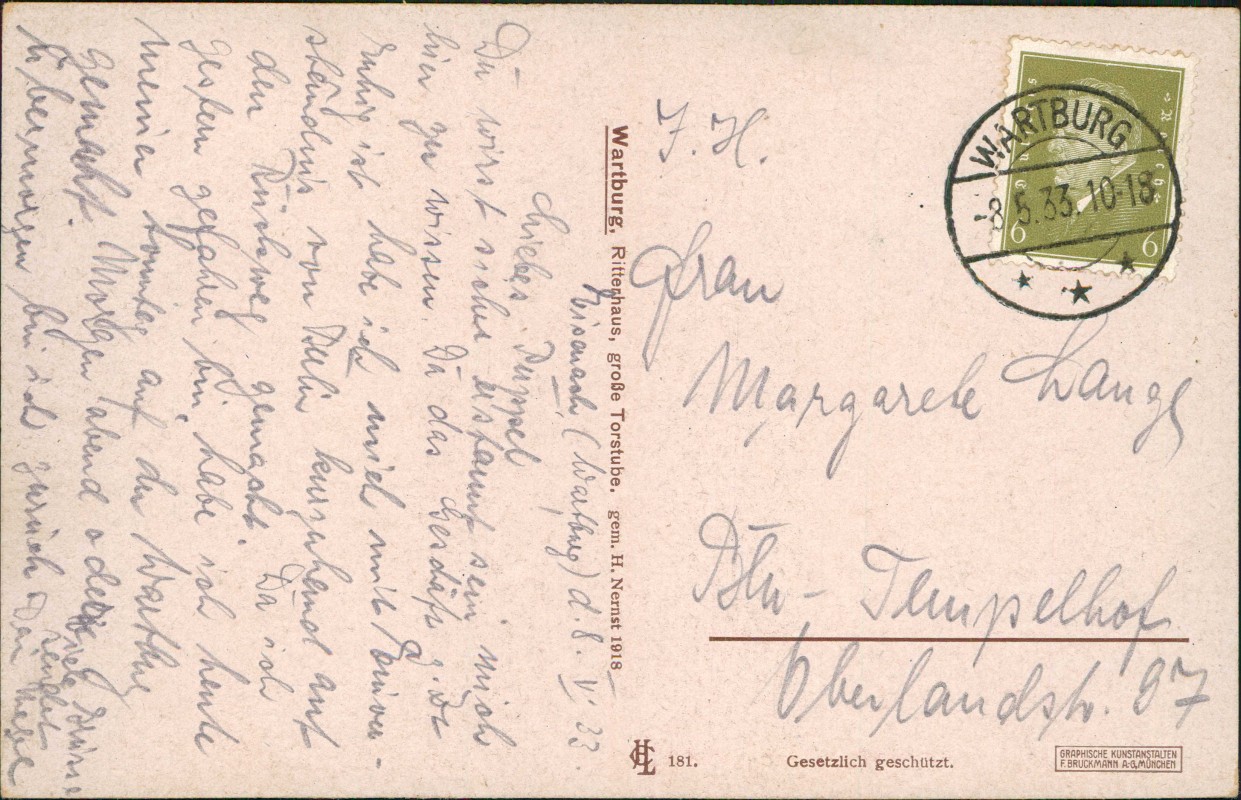 Eisenach (Wartburg) d. 8. V. 33.
Liebes Puppel
Du wirst sicher erstaunt sein mich
hier zu wissen. Da das Geschäft z. Zt
ruhig ist habe ich mich mit Deinver-
ständnis von kurzerhand auf
den Rückweg gemacht. Da ich
gestern gefahren bin, habe ich heute
meinen auf der Wartburg
gemacht. Morgen abend oder
übermorgen bin ich zurück
viele Grüße
sendet
Dein
Wartburg, Ritterhaus, große Torstube, gem. H. Nernst 1918
F. H.
Frau
Margarete Lange
Bln-Tempelhof
Oberlandstr. 97
WARTBURG
-8.5.33.10-18
Deutsches Reich
6 6
HCL 181.
Gesetzlich geschützt.
GRAPHISCHE KUNSTANSTALTEN
F. BRUCKMANN A.-G., MÜNCHEN